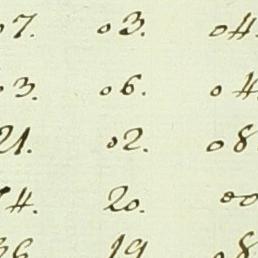 07. 03. 04.
03. 06. 04
21. 02. 08
4. 20. 00
36 19 08